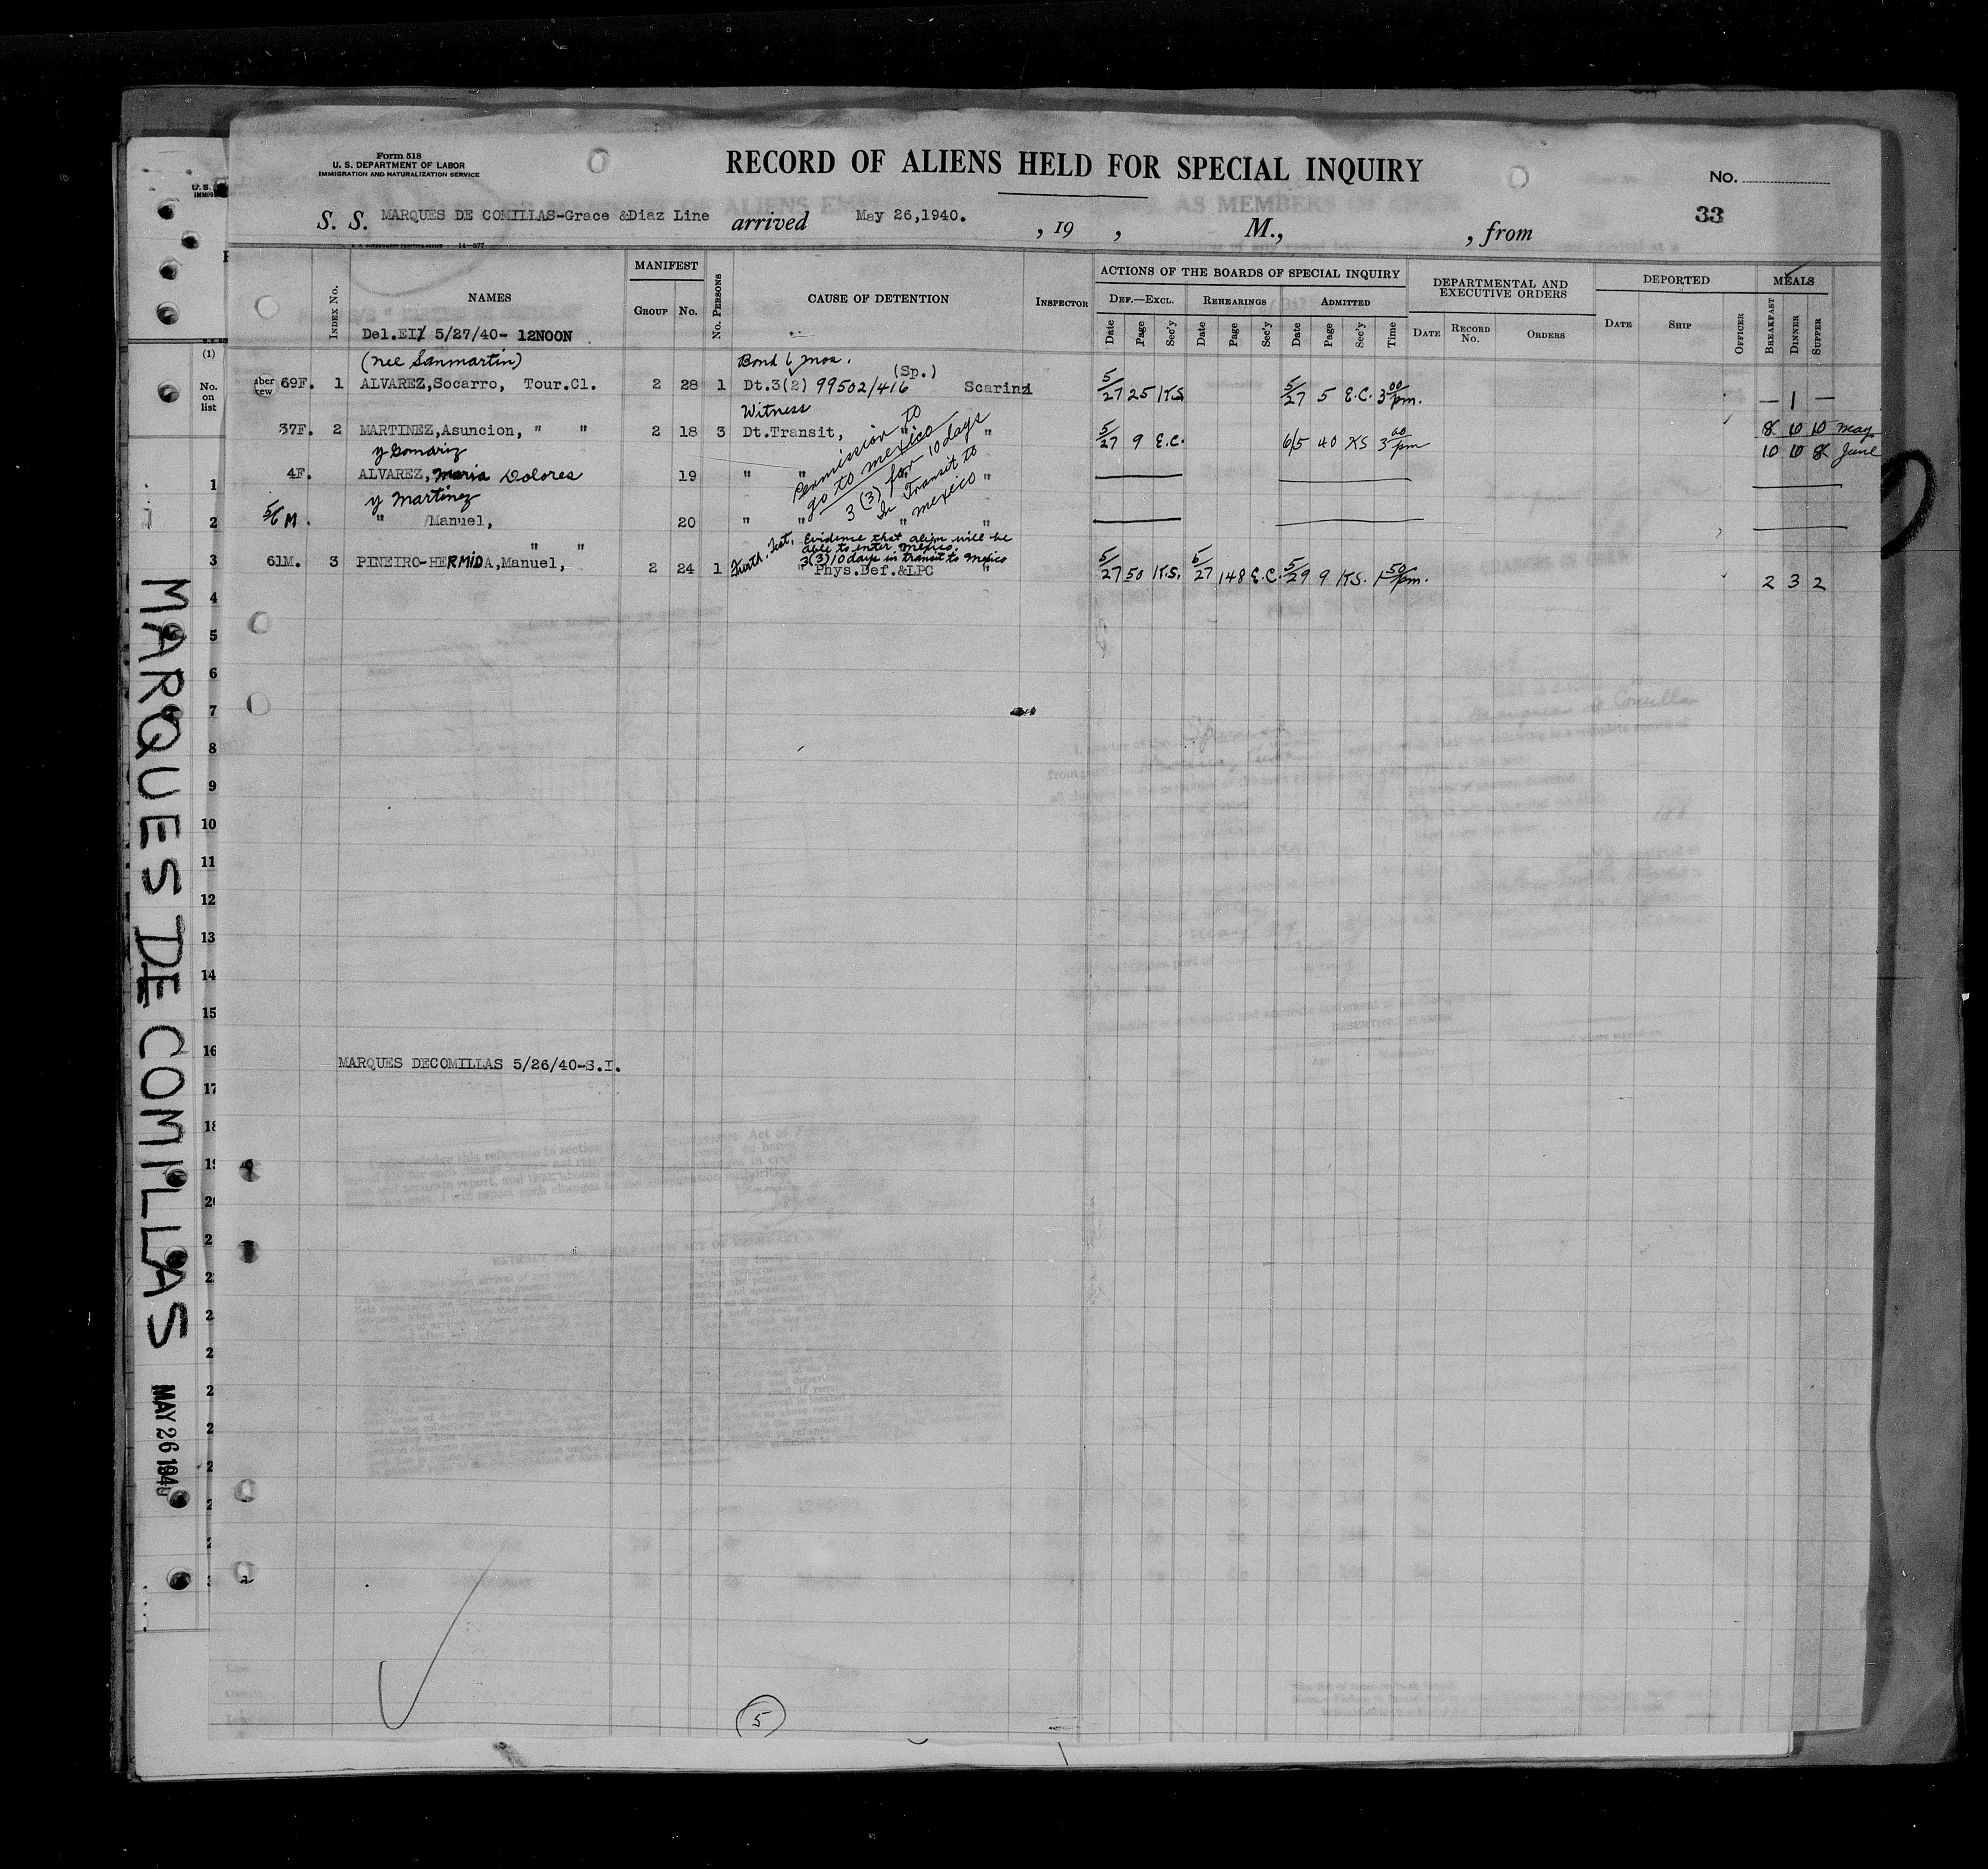 Form 518
U. S. DEPARTMENT OF LABOR
IMMIGRATION AND NATURALIZATION SERVICE
RECORD OF ALIENS HELD FOR SPECIAL INQUIRY
No.
33
S. S. MARQUES DE COMILLAS-Grace &Diaz Line arrived May 26,1940. , 19 , M., , from
INDEX No. NAMES MANIFEST GROUP No. No. PERSONS CAUSE OF DETENTION INSPECTOR
ACTIONS OF THE BOARDS OF SPECIAL INQUIRY
DEF.—EXCL. REHEARINGS ADMITTED
Date Page Sec'y Date Page Sec'y Date Page Sec'y Time
DEPARTMENTAL AND EXECUTIVE ORDERS
DATE RECORD No. ORDERS
DEPORTED
DATE SHIP OFFICER
MEALS
BREAKFAST DINNER SUPPER
Del.EI/ 5/27/40- 12NOON
(nee Sanmartin) Bond 6 mos.
69F. 1 ALVAREZ,Socarro, Tour.Cl. 2 28 1 Dt.3(2) 99502/416 (Sp.) Scarinzi 5/27 25 K.S. 5/27 5 E.C. 3 00 pm. — 1 —
Witness
37F. 2 MARTINEZ,Asuncion, " " 2 18 3 Dt.Transit, " " 5/27 9 E.C. 6/5 40 KS 3 00 pm 8 10 10 May
y Gomariz 10 10 8 June
4F. ALVAREZ, Maria Dolores 19 " " "
y Martinez
5/6 M. " Manuel, 20 " " " "
Permission to
go to mexico
3 (3) for 10 days
In Transit to
mexico
" " Furth. Test. Evidence that alien will be
able to enter Mexico.
3(3) 10 days in transit to Mexico
61M. 3 PINEIRO-HERMIDA,Manuel, 2 24 1 Phys.Def.&LPC " 5/27 50 K.S. 5/27 148 E.C. 5/29 9 K.S. 1 50 pm. 2 3 2
MARQUES DECOMILLAS 5/26/40-S.I.
5
MARQUES DE COMILLAS
MAY 26 1940
(1)
No.
on
list
1
2
3
4
5
6
7
8
9
10
11
12
13
14
15
16
17
18